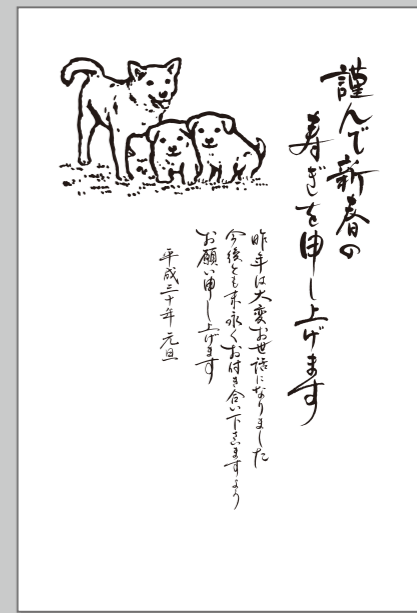 謹んで新春の
寿ぎを申し上げます
昨年は大変お世話になりました
今後とも末永くお付き合い下さいますよう
お願い申し上げます
平成三十年 元旦